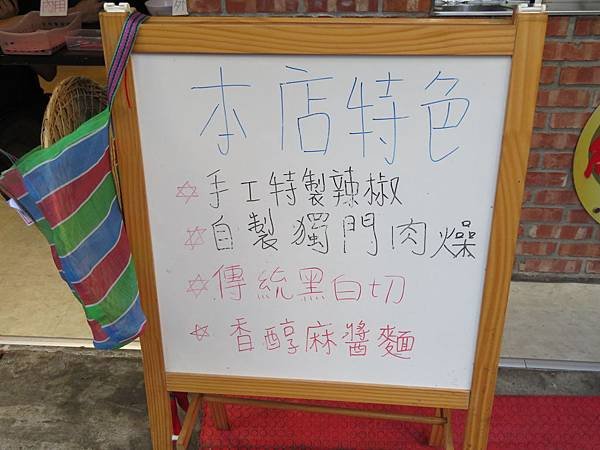 本店特色
☆手工特製辣椒
☆自製獨門肉燥
☆傳統黑白切
☆香醇麻醬麵